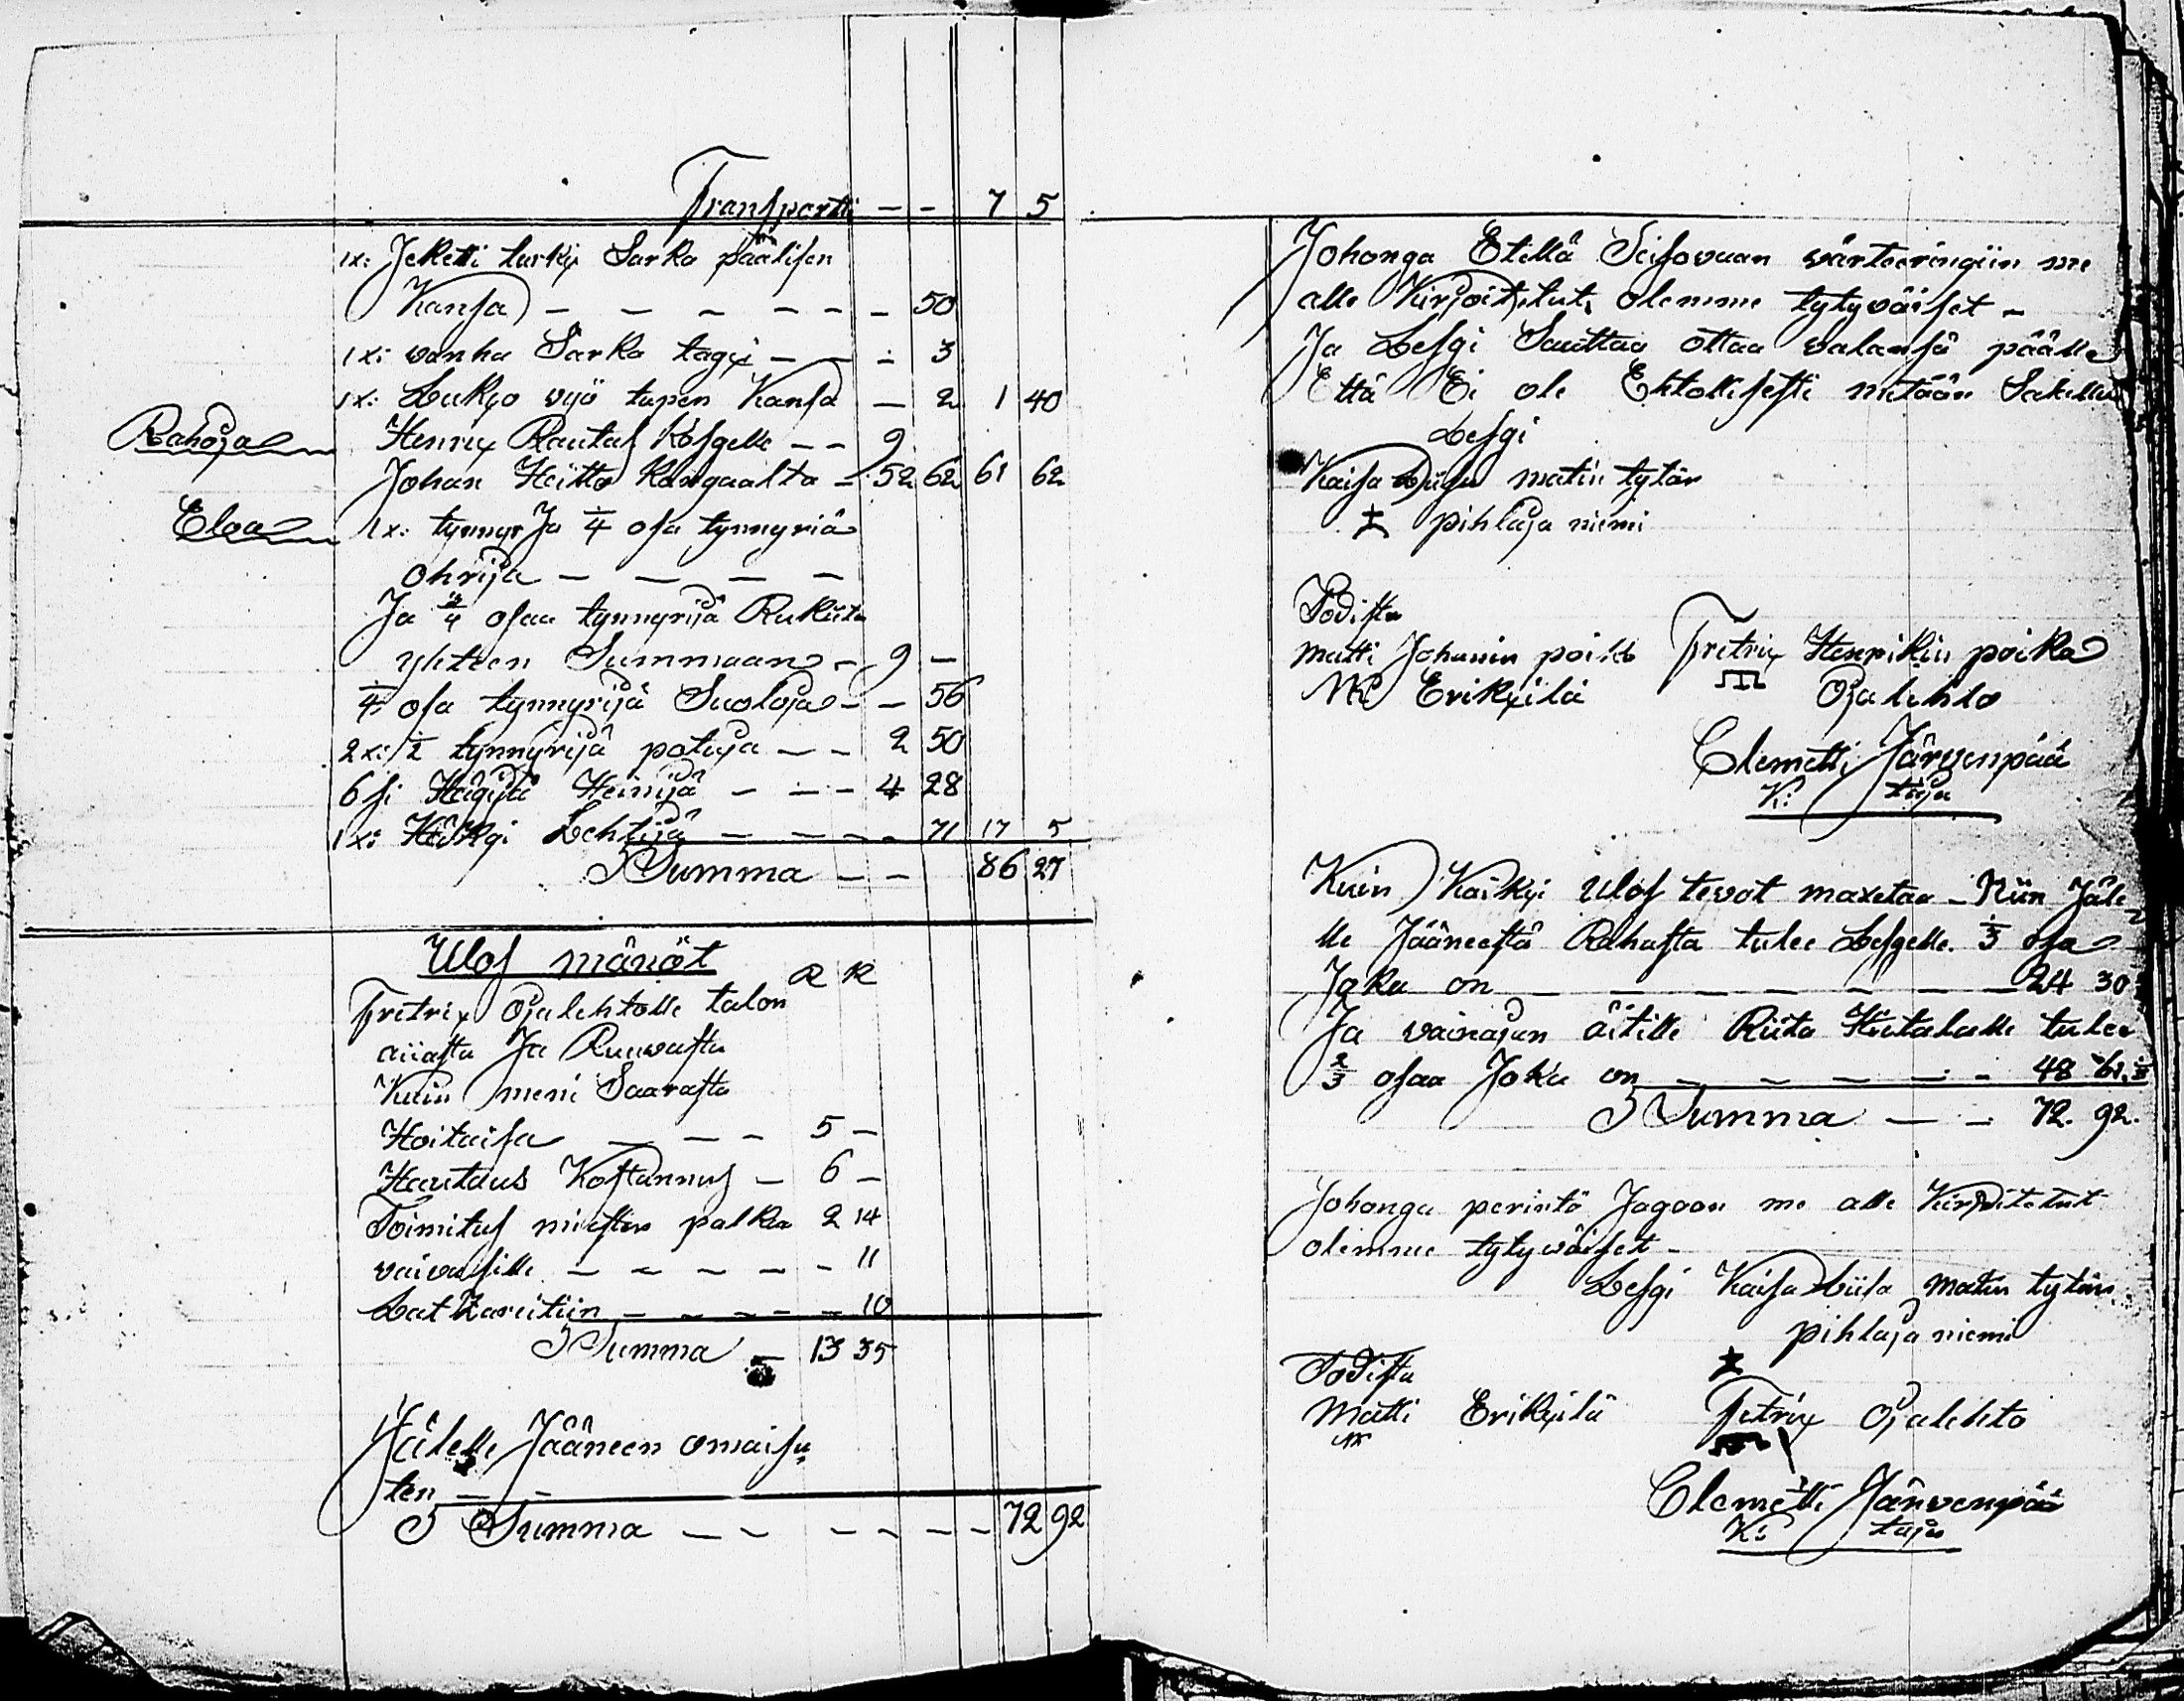 Transportti — — 7 5
1x: Jeketti turki Sarka päälisen
Kansa — — — — — — 50
1x: vanha Sarka tagxi — — — 3
1x: Lukxo vyö tupen Kansa — 2 1 40
Rahoja Henrix Rautus Kosgelle — — 9
Johan Heitto Kangaalta — 52 62 61 62
Eloa 1x: tynnyr Ja 1/4 osa tynnyriä
ohrija — — — —
Ja 3/4 osaa tynnyrijä Rukiita
yhteen Summaan — 9 —
1/4 osa tynnyrijä Suoloja — — 56
2x: 1/2 tynnyrijä potuja — — 2 50
6 si Hägijä Heinijä — — — 4 28
1x: Hägki Lehtijä — — — — 71 17 5
Summa — — 86 27
Ulos mänöt
R K
Fretrix Ojalehtolle talon
aiiasta Ja Ruuvasta
Kuin meni Saarasta
Hoitaisa — — — 5 —
Hautaus Kostannus — 6 —
Toimitus miesten palkka 2 14
vaivasille — — — — — — 11
Latzareitiin — — — — — 10
Summa — 13 35
Jälelle Jääneen omaisu
ten — —
Summa — — — — — — — 72 92
Johonga Etellä Seisovaan värteeringiin me
alle Kirjoitetut olemme tytyväiset —
Ja Lesgi Sauttaa ottaa valansä päälle
Että Ei ole Ehtollisesti mitään Salattu
Lesgi
Kaisa Liisa matin tytär
pihlaja niemi
Todista
Matti Johanin poika Fretrix Henrikin poika
Erikxilä Ojalehto
Clemetti Järvenpää
K: taja
Kuin Kaikxi Ulos tevot maxetaa — Niin Jäle
lle Jääneestä Rahasta tulee Lesgelle 1/3 osa
Joka on — — — — — — — — 24 30
Ja vainajan äitille Riita Hietalalle tulee
2/3 osaa Joka on — — — — — — 48 61
Summa — — 72. 92.
Johonga perintö Jagoon me alle Kirjoitetut
olemme tytyväiset —
Lesgi Kaisa Liisa Matin tytär
pihlaja niemi
Todista
Matti Erikxilä Fetrix Ojalehto
Clemetti Järvenpää
K: taja